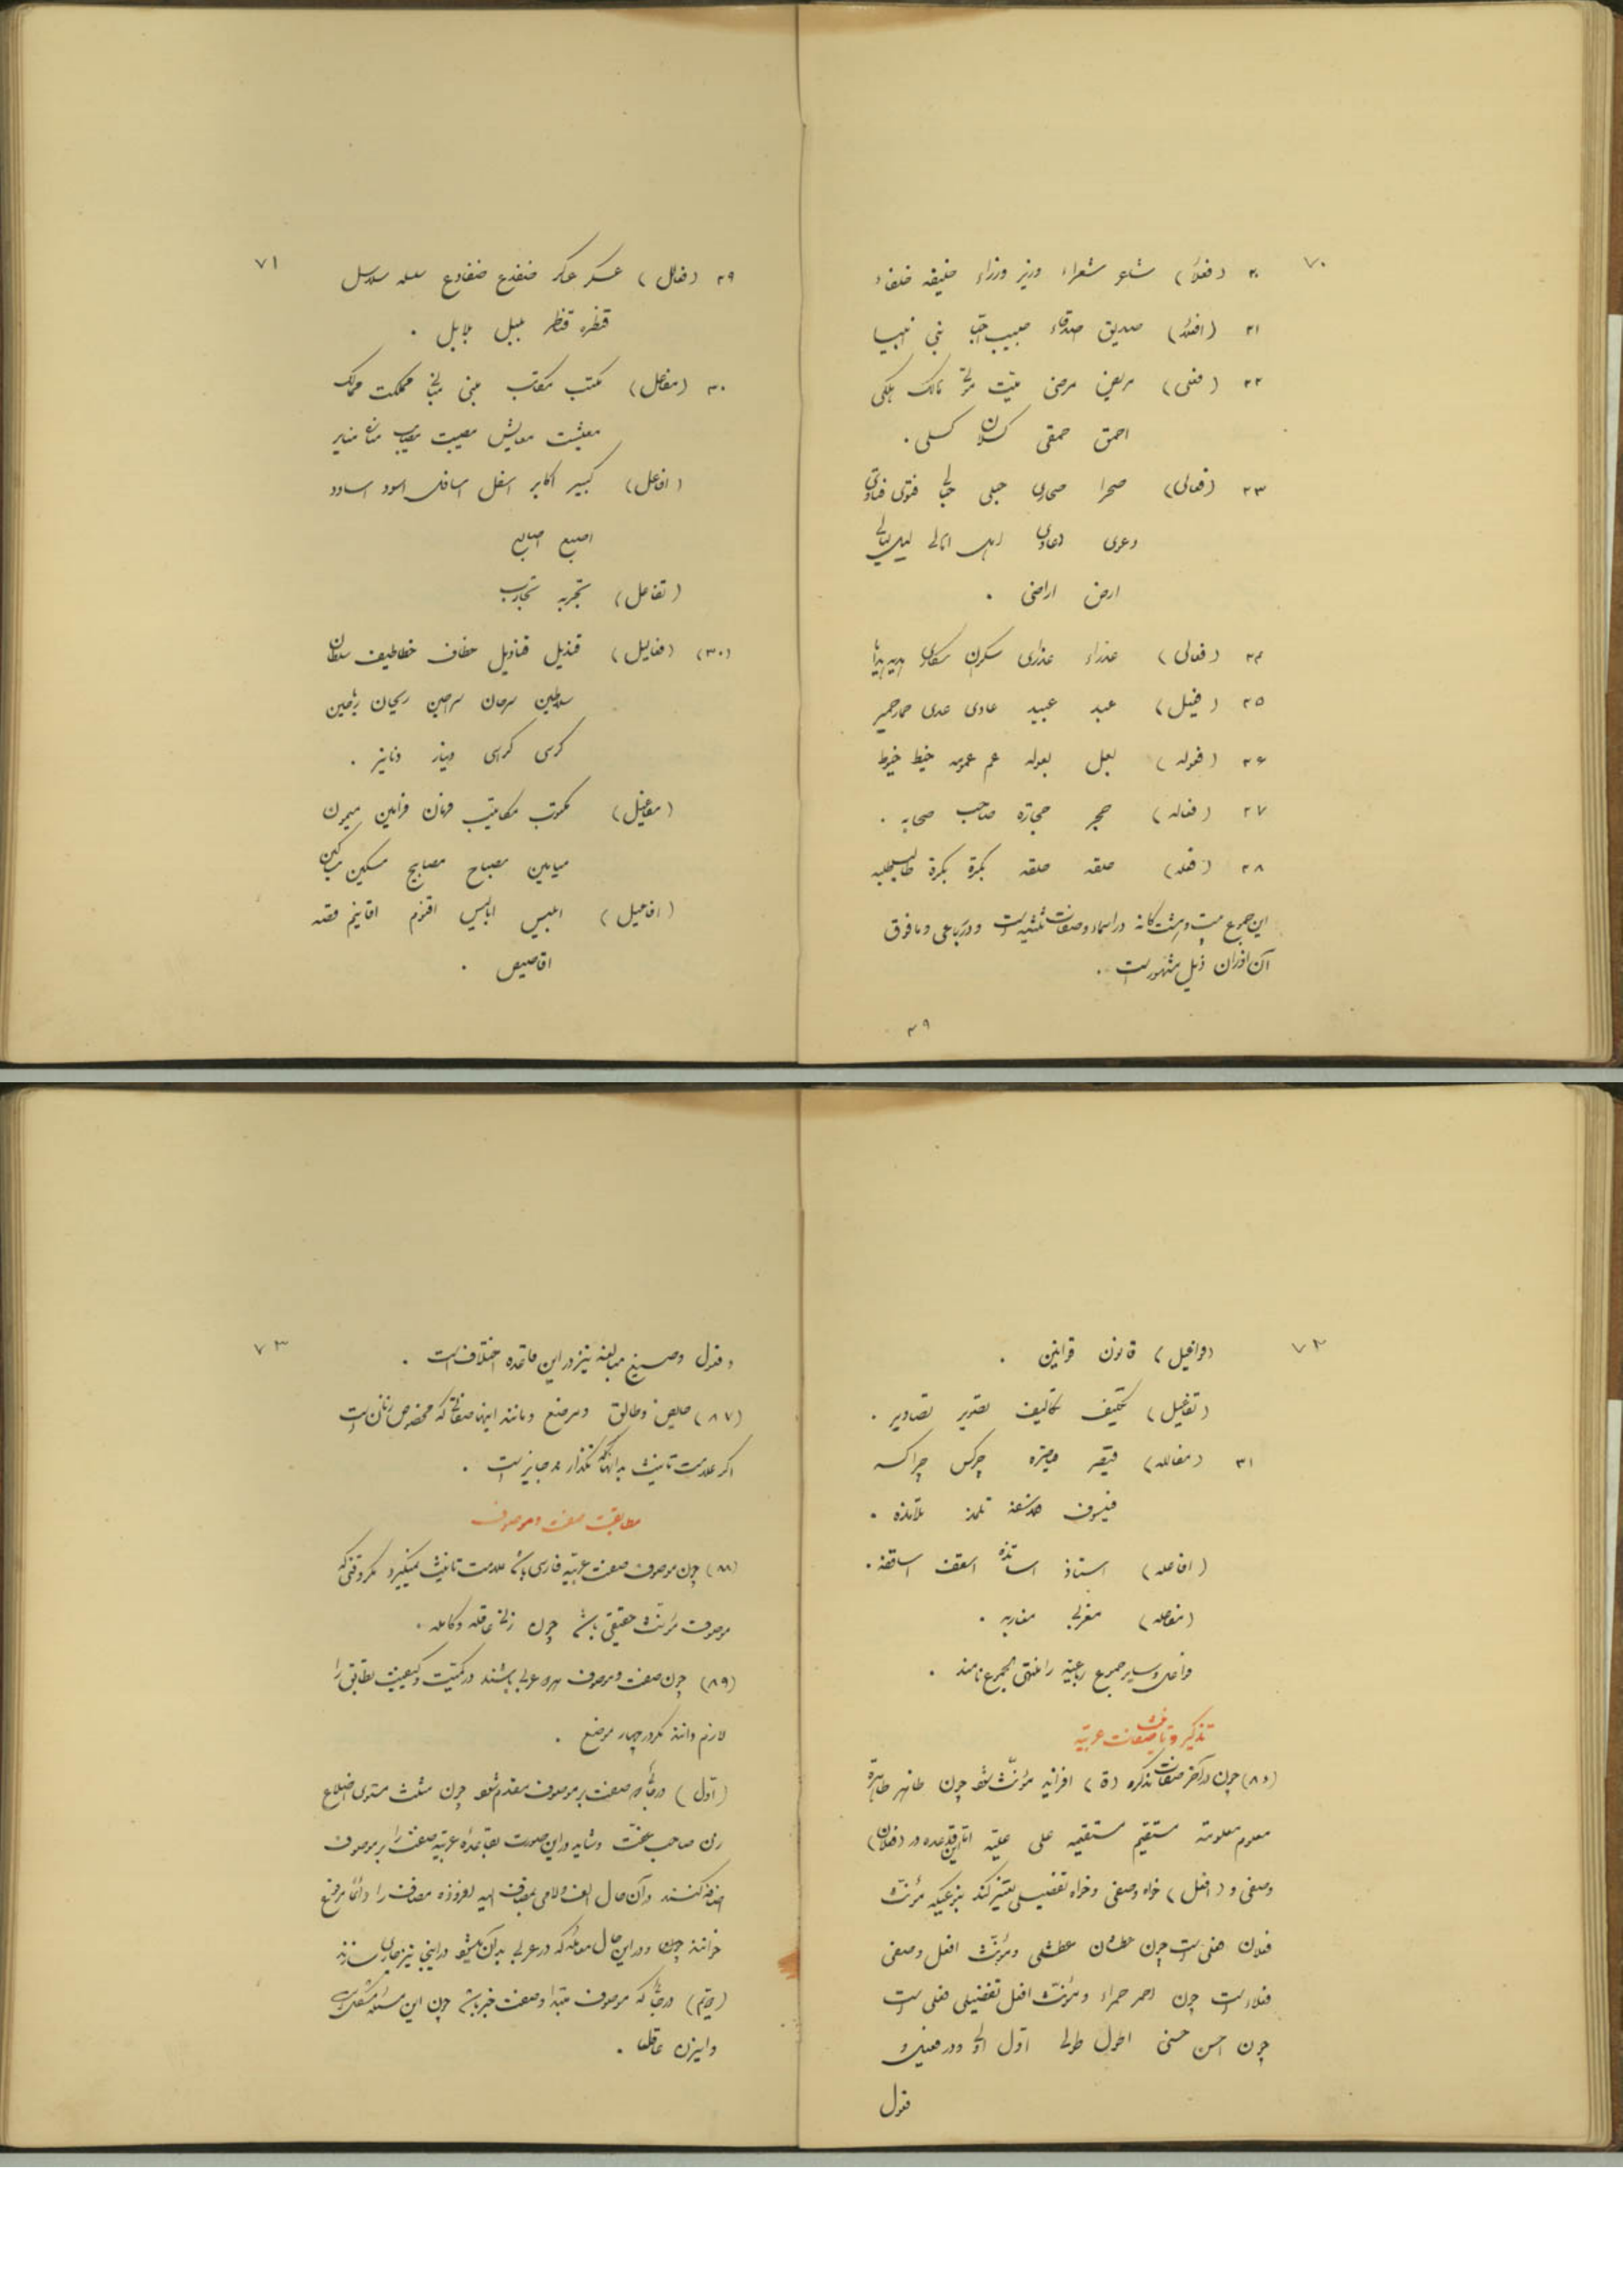 ۷۰
۲۰ (فعلاء) شاعر شعراء وزیر وزراء خلیفه خلفاء
۲۱ (افعلاء) صدیق اصدقاء حبیب احبا نبی انبیا
۲۲ (فعلی) مریض مرضی میّت موتی هالک هلکی
احمق حمقی کسلان کسلی .
۲۳ (فعالی) صحرا صحاری حبلی حبالی فتوی فتاوی
دعوی دعاوی اهل اهالی لیل لیالی
ارض اراضی .
۲۴ (فعالی) عذراء عذاری سکران سکاری هدیه هدایا
۲۵ (فعیل) عبد عبید عادی عدی حمار حمیر
۲۶ (فعوله) بعل بعوله عم عمومه خیط خیوط
۲۷ (فعاله) حجر حجارة صاحب صحابه .
۲۸ (فعله) حلقه حلقه بکرة بکرة طالب طلبه
این جموع بیست و هشت گانه در اسماء و صفات ثلثیه است و در رباعی و مافوق
آن اوزان ذیل مشهور است .
۲۹
۷۱
۲۹ (فعالل) عسکر عساکر ضفدع ضفادع سلسله سلاسل
قنطره قناطر بلبل بلابل .
۳۰ (مفاعل) مکتب مکاتب مبنی مبانی مملکت ممالک
معیشت معایش مصیبت مصایب مناره منایر
(افاعل) کبیر اکابر اسفل اسافل اسود اساود
اصبع اصابع
(تفاعل) تجربه تجارب
(۳۰) (فعالیل) قندیل قنادیل خطاف خطاطیف سلطان
سلاطین سرحان سراحین ریحان ریاحین
کرسی کراسی دینار دنانیر .
(مفاعیل) مکتوب مکاتیب فرمان فرامین میمون
میامین مصباح مصابیح مسکین مساکین
(افاعیل) ابلیس ابالیس اقنوم اقانیم قصه
اقاصیص .
۷۲
(فواعیل) قانون قوانین .
(تفاعیل) تکلیف تکالیف تصویر تصاویر .
۳۱ (فعالله) قیصر قیاصره چرکس چراکسه
فیلسوف فلاسفه تلمیذ تلامذه .
(افاعله) استاذ اساتذه اسقف اساقفه .
(مفاعله) مغربی مغاربه .
فواعل و سایر جموع رباعیه را منتهی الجموع نامند .
تذکیر و تانیث صفات عربیّه
(۸۶) چون در آخر صفات مذکره (ة) افزاید مؤنّث شود چون طاهر طاهرة
معلوم معلومة مستقیم مستقیمه علی علیّه امّا این قاعده در (فعلان)
وصفی و (افعل) خواه وصفی و خواه تفضیلی تغییر کند بنوعیکه مؤنّث
فعلان فعلی است چون عطشان عطشی و مؤنّث افعل وصفی
فعلاء است چون احمر حمراء و مؤنث افعل تفضیلی فعلی است
چون احسن حسنی اطول طولی اوّل اولی و در فعیل و
فعول
۷۳
و فعول و صیغ مبالغه نیز در این قاعده اختلاف است .
(۸۷) حایض و طالق و مرضع و مانند اینها صفاتی که مخصوص زنان است
اگر علامت تانیث بدانها نگذارند جایز است .
مطابقت صفت و موصوف
(۸۸) چون موصوف صفت عربیّه فارسی باشد علامت تانیث نمیگیرد مگر وقتی که
موصوف مؤنث حقیقی باشد چون زنی عاقله و کامله .
(۸۹) چون صفت و موصوف هر دو عربی باشند در کمیّت و کیفیت تطابق را
لازم دانند مگر در چهار موضع .
(اوّل) در جائی که صفت بر موصوف مقدم شود چون مثلث متساوی اضلاع
زن صاحب عفّت و شاید در این صورت بقاعدهٔ عربیّه صفت را بر موصوف
اضافه کنند و آن حال الف و لامی بمضاف الیه افزوده مضاف را دائما مرفوع
خوانند چون و در این حال معامله که در عربی بدان میشود در اینجا نیز جاری سازند
(دویّم) در جائی که موصوف مبتدا و صفت خبر باشد چون این مسئله مشکل است
و این زن عاقل .